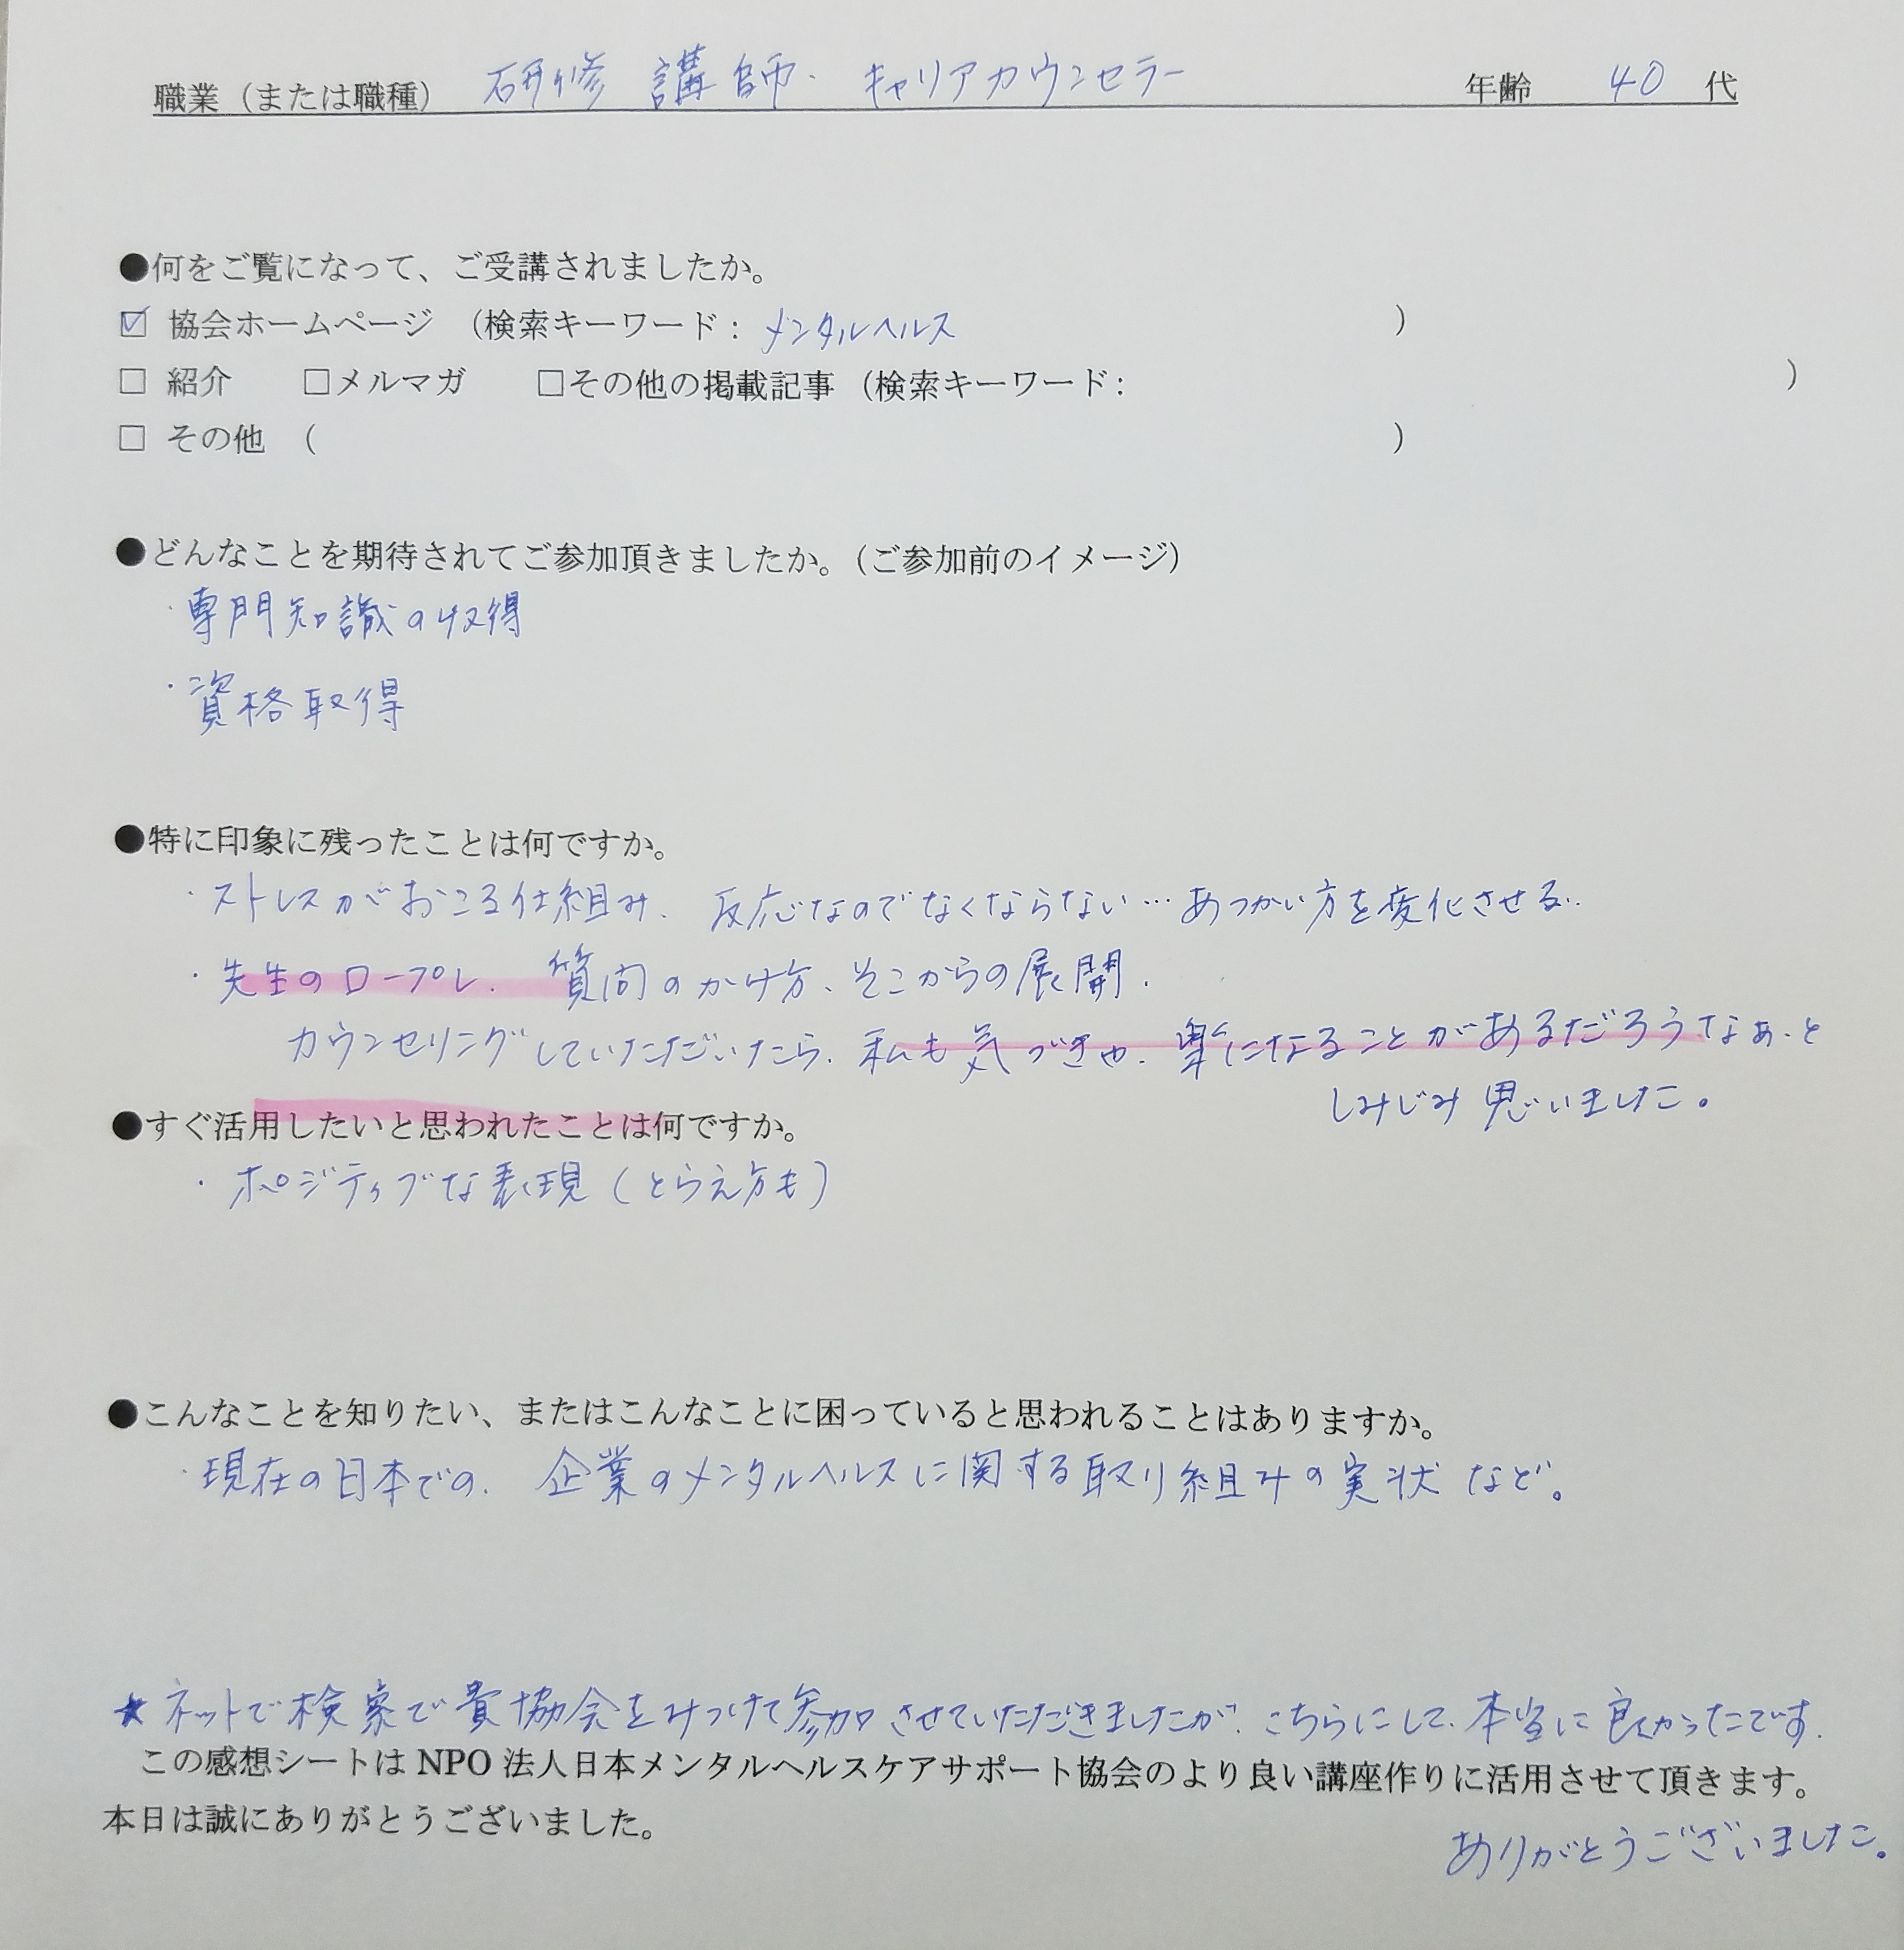 職業（または職種） 研修 講師. キャリアカウンセラー 年齢 40 代
●何をご覧になって、ご受講されましたか。
☑ 協会ホームページ （検索キーワード： メンタルヘルス ）
□ 紹介 □メルマガ □その他の掲載記事（検索キーワード： ）
□ その他 （ ）
●どんなことを期待されてご参加頂きましたか。（ご参加前のイメージ）
・専門知識の収得
・資格取得
●特に印象に残ったことは何ですか。
・ストレスがおこる仕組み. 反応なのでなくならない…あつかい方を変化させる..
・先生のロープレ. 質問のかけ方、そこからの展開.
カウンセリングしていただいたら. 私も気づきや. 楽になることがあるだろうなぁ.と
しみじみ思いました。
●すぐ活用したいと思われたことは何ですか。
・ポジティブな表現（とらえ方も）
●こんなことを知りたい、またはこんなことに困っていると思われることはありますか。
・現在の日本での. 企業のメンタルヘルスに関する取り組みの実状 など。
★ネットで検索で貴協会をみつけて参加させていただきましたが. こちらにして. 本当に良かったです.
この感想シートは NPO 法人日本メンタルヘルスケアサポート協会のより良い講座作りに活用させて頂きます。
本日は誠にありがとうございました。
ありがとうございました。